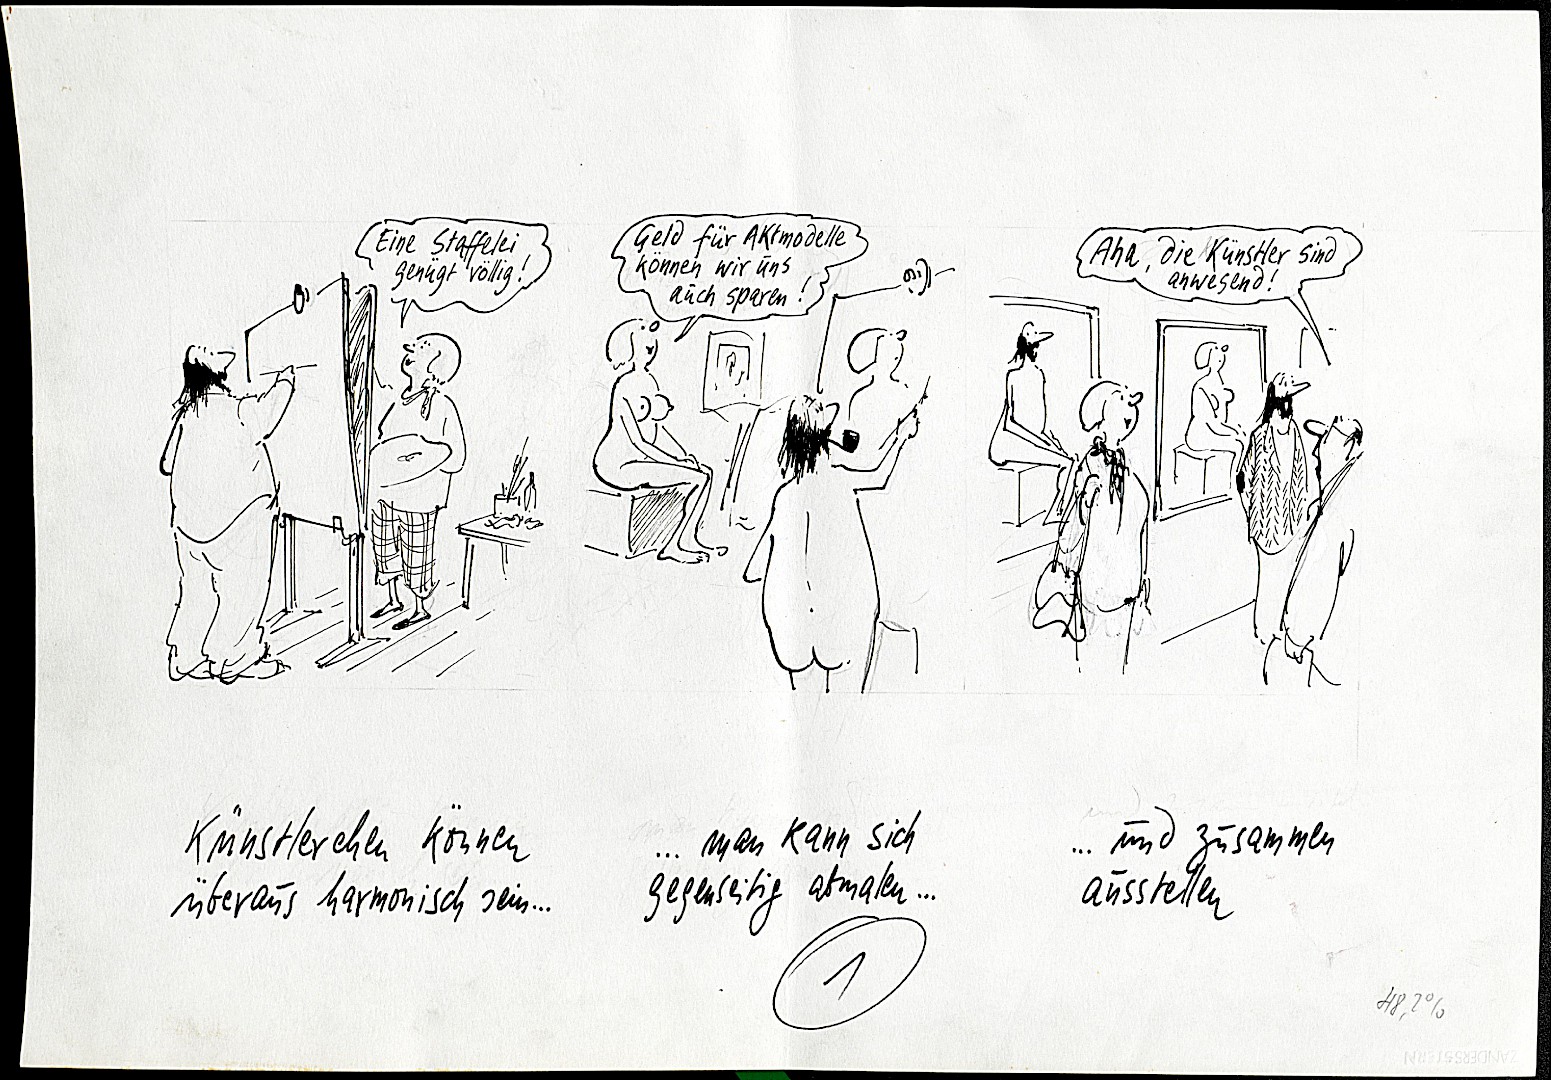 Eine Staffelei
genügt völlig!
Geld für Aktmodelle
können wir uns
auch sparen!
Aha, die Künstler sind
anwesend!
Künstlerehen können
überaus harmonisch sein...
... man kann sich
gegenseitig abmalen...
... und zusammen
ausstellen
1
48,2%
ZANDERSSTERN